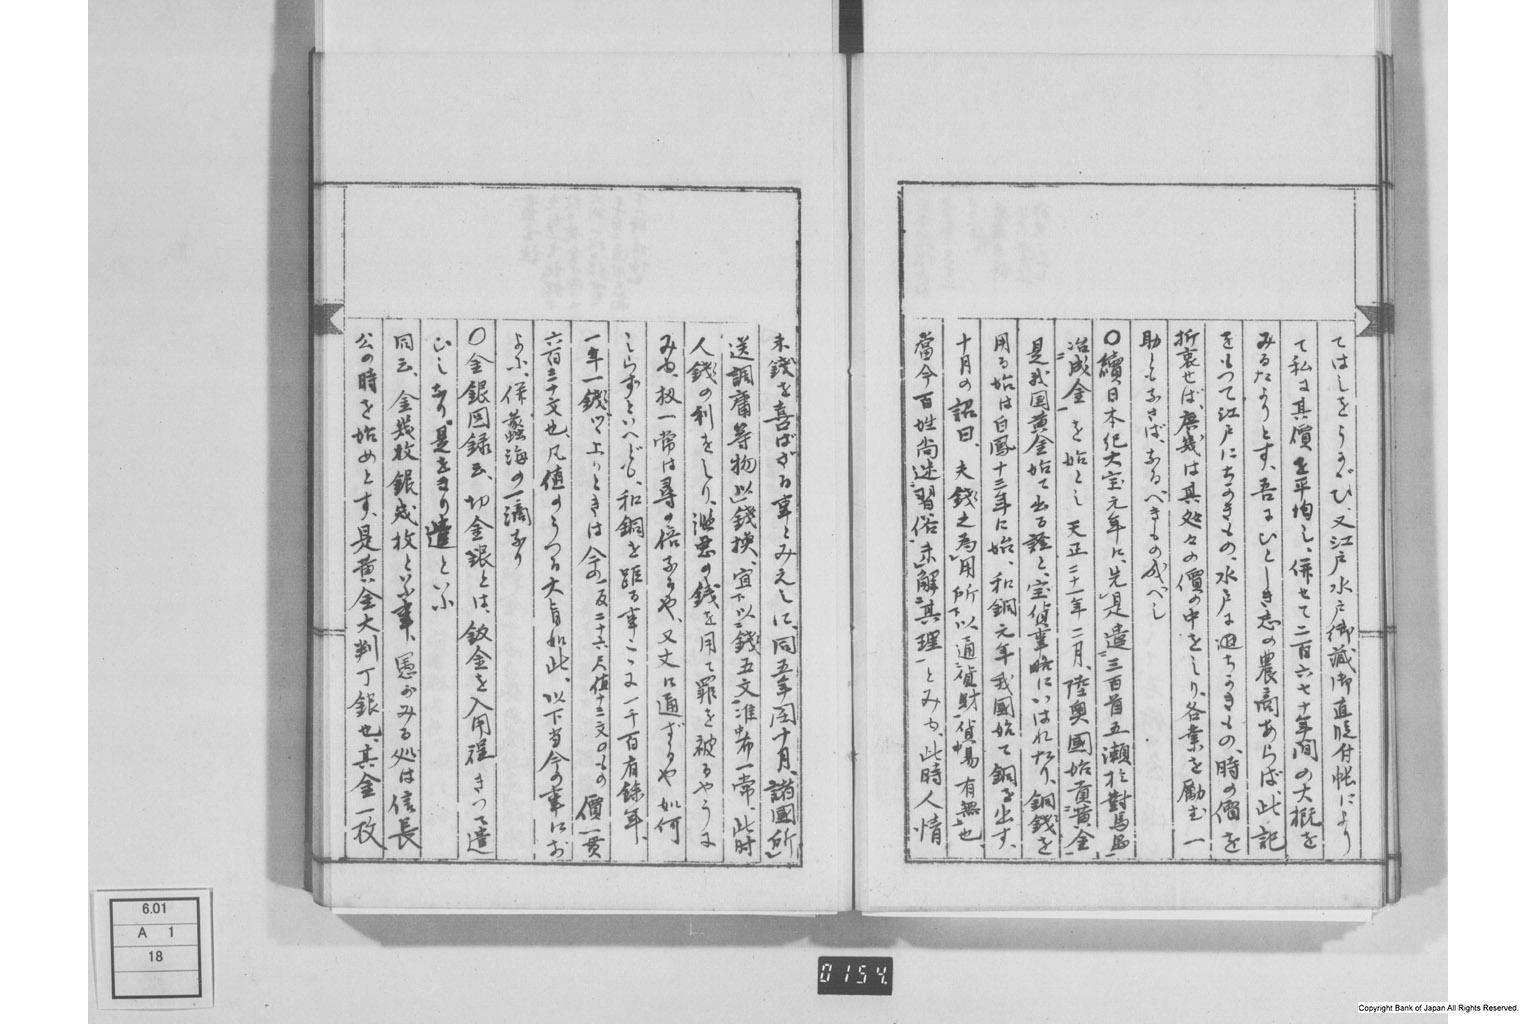 てはしをうかゞひ、又江戸水戸御藏御直段付帳により
て私に其價を平均し、併せて二百六七十年間の大概を
みるたよりとす、吾にひとしき志の農商あらば、此記
をもつて江戸にちかきもの、水戸に近ちかきもの、時の價を
折衷せば、庶幾は其処々の價の中をしり、各業を勵む一
助ともなさば、なるべきもの成べし
〇續日本紀大宝元年に、先是遣三百首五瀬於對馬島
冶成金を始とし 天正二十一年二月、陸奥國始貢黄金
是我国黄金始て出る證と、宝貨事略にいはれたり、銅錢を
用る始は白鳳十三年に始、和銅元年我國始て銅を出す、
十月の詔曰、夫錢之為用所以通貨財貿易有無也
當今百姓尚迷習俗未解其理とみゆ、此時人情
未錢を喜ばざる事とみえしに、同五年閏十月、諸國所
送調庸等物以錢換、宜下以錢五文准中布一常、此时
人錢の利をしり、濫惡の錢を用て罪を被るやうに
みゆ、扱一常は尋の倍なるや、又丈に通ずるや如何
しらずといへども、和銅を距る事こゝに一千百有餘年、
一年一錢ツヽ上りときは今の一反二十六尺値十三文のもの價一貫
六百三十文也、凡値のうつる大旨如此、以下当今の事にお
よぶ、併蠡海の一滴なり
〇金銀図録云、切金銀とは、鈑金を入用程きつて遣
ひしなり、是をきり遣といふ
同云、金幾枚銀幾枚といふ事、愚がみる処は信長
公の時を始めとす、是黄金大判丁銀也、其金一枚
6.01
A 1
18
0154.
Copyright Bank of Japan All Rights Reserved.